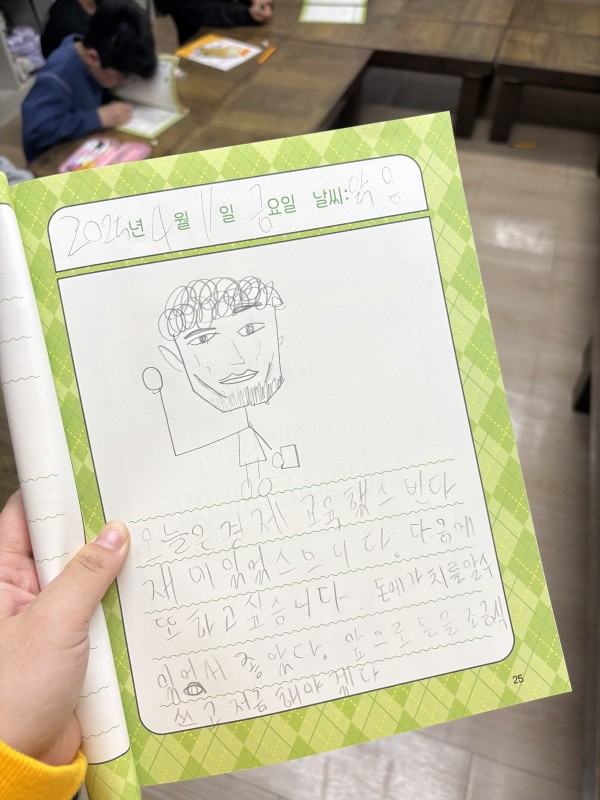 2025년 4월 11일 금요일 날씨: 맑음
오늘은 경제 교육 했스빈다
재미있었스으니다. 다음에
또 하고싶습니다. 돈에가치를알수
있어서 좋았다. 앞으로 돈을 조금씩
쓰고 저금 해야겠다
25